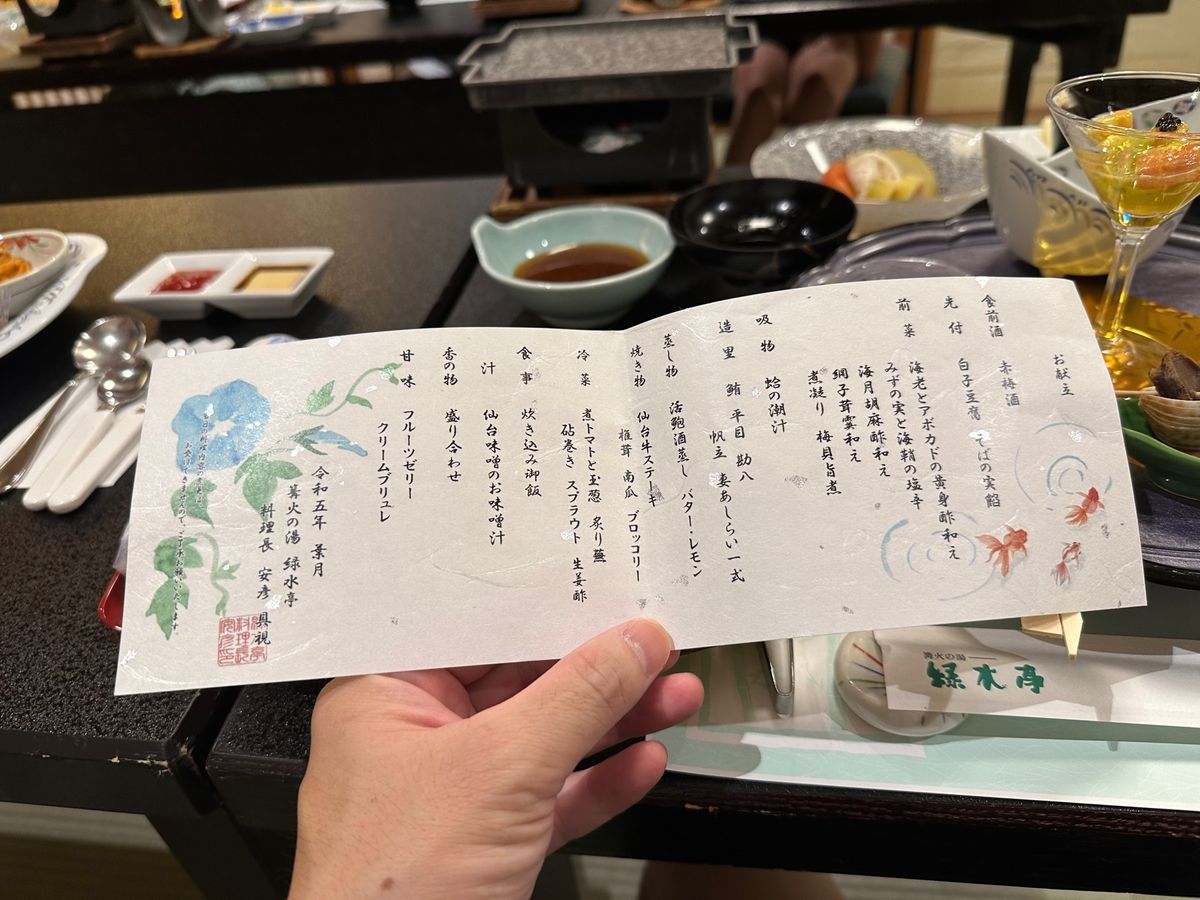 お献立
食前酒 赤梅酒
先付 白子豆腐 そばの実餡
前菜 海老とアボカドの黄身酢和え
みずの実と海鞘の塩辛
海月胡麻酢和え
網子茸雲和え
煮凝り 梅貝旨煮
吸物 蛤の潮汁
造里 鮪 平目 勘八
帆立 妻あしらい一式
蒸し物 活鮑酒蒸し バター・レモン
焼き物 仙台牛ステーキ
椎茸 南瓜 ブロッコリー
冷菜 煮トマトと玉葱 炙り蕪
砧巻き スプラウト 生姜酢
食事 炊き込み御飯
汁 仙台味噌のお味噌汁
香の物 盛り合わせ
甘味 フルーツゼリー
クリームブリュレ
令和五年 葉月
篝火の湯 緑水亭
料理長 安彦 具視
お受けできませんので、ご了承お願いいたします。
篝火の湯
緑水亭